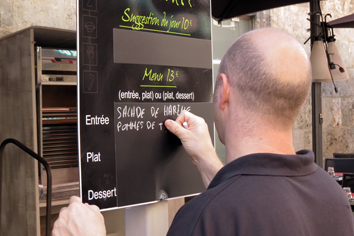 Suggestion du jour 10€
Menu 13€
(entrée, plat) ou (plat, dessert)
Entrée
SALADE DE HARENG
POMMES DE T
Plat
Dessert